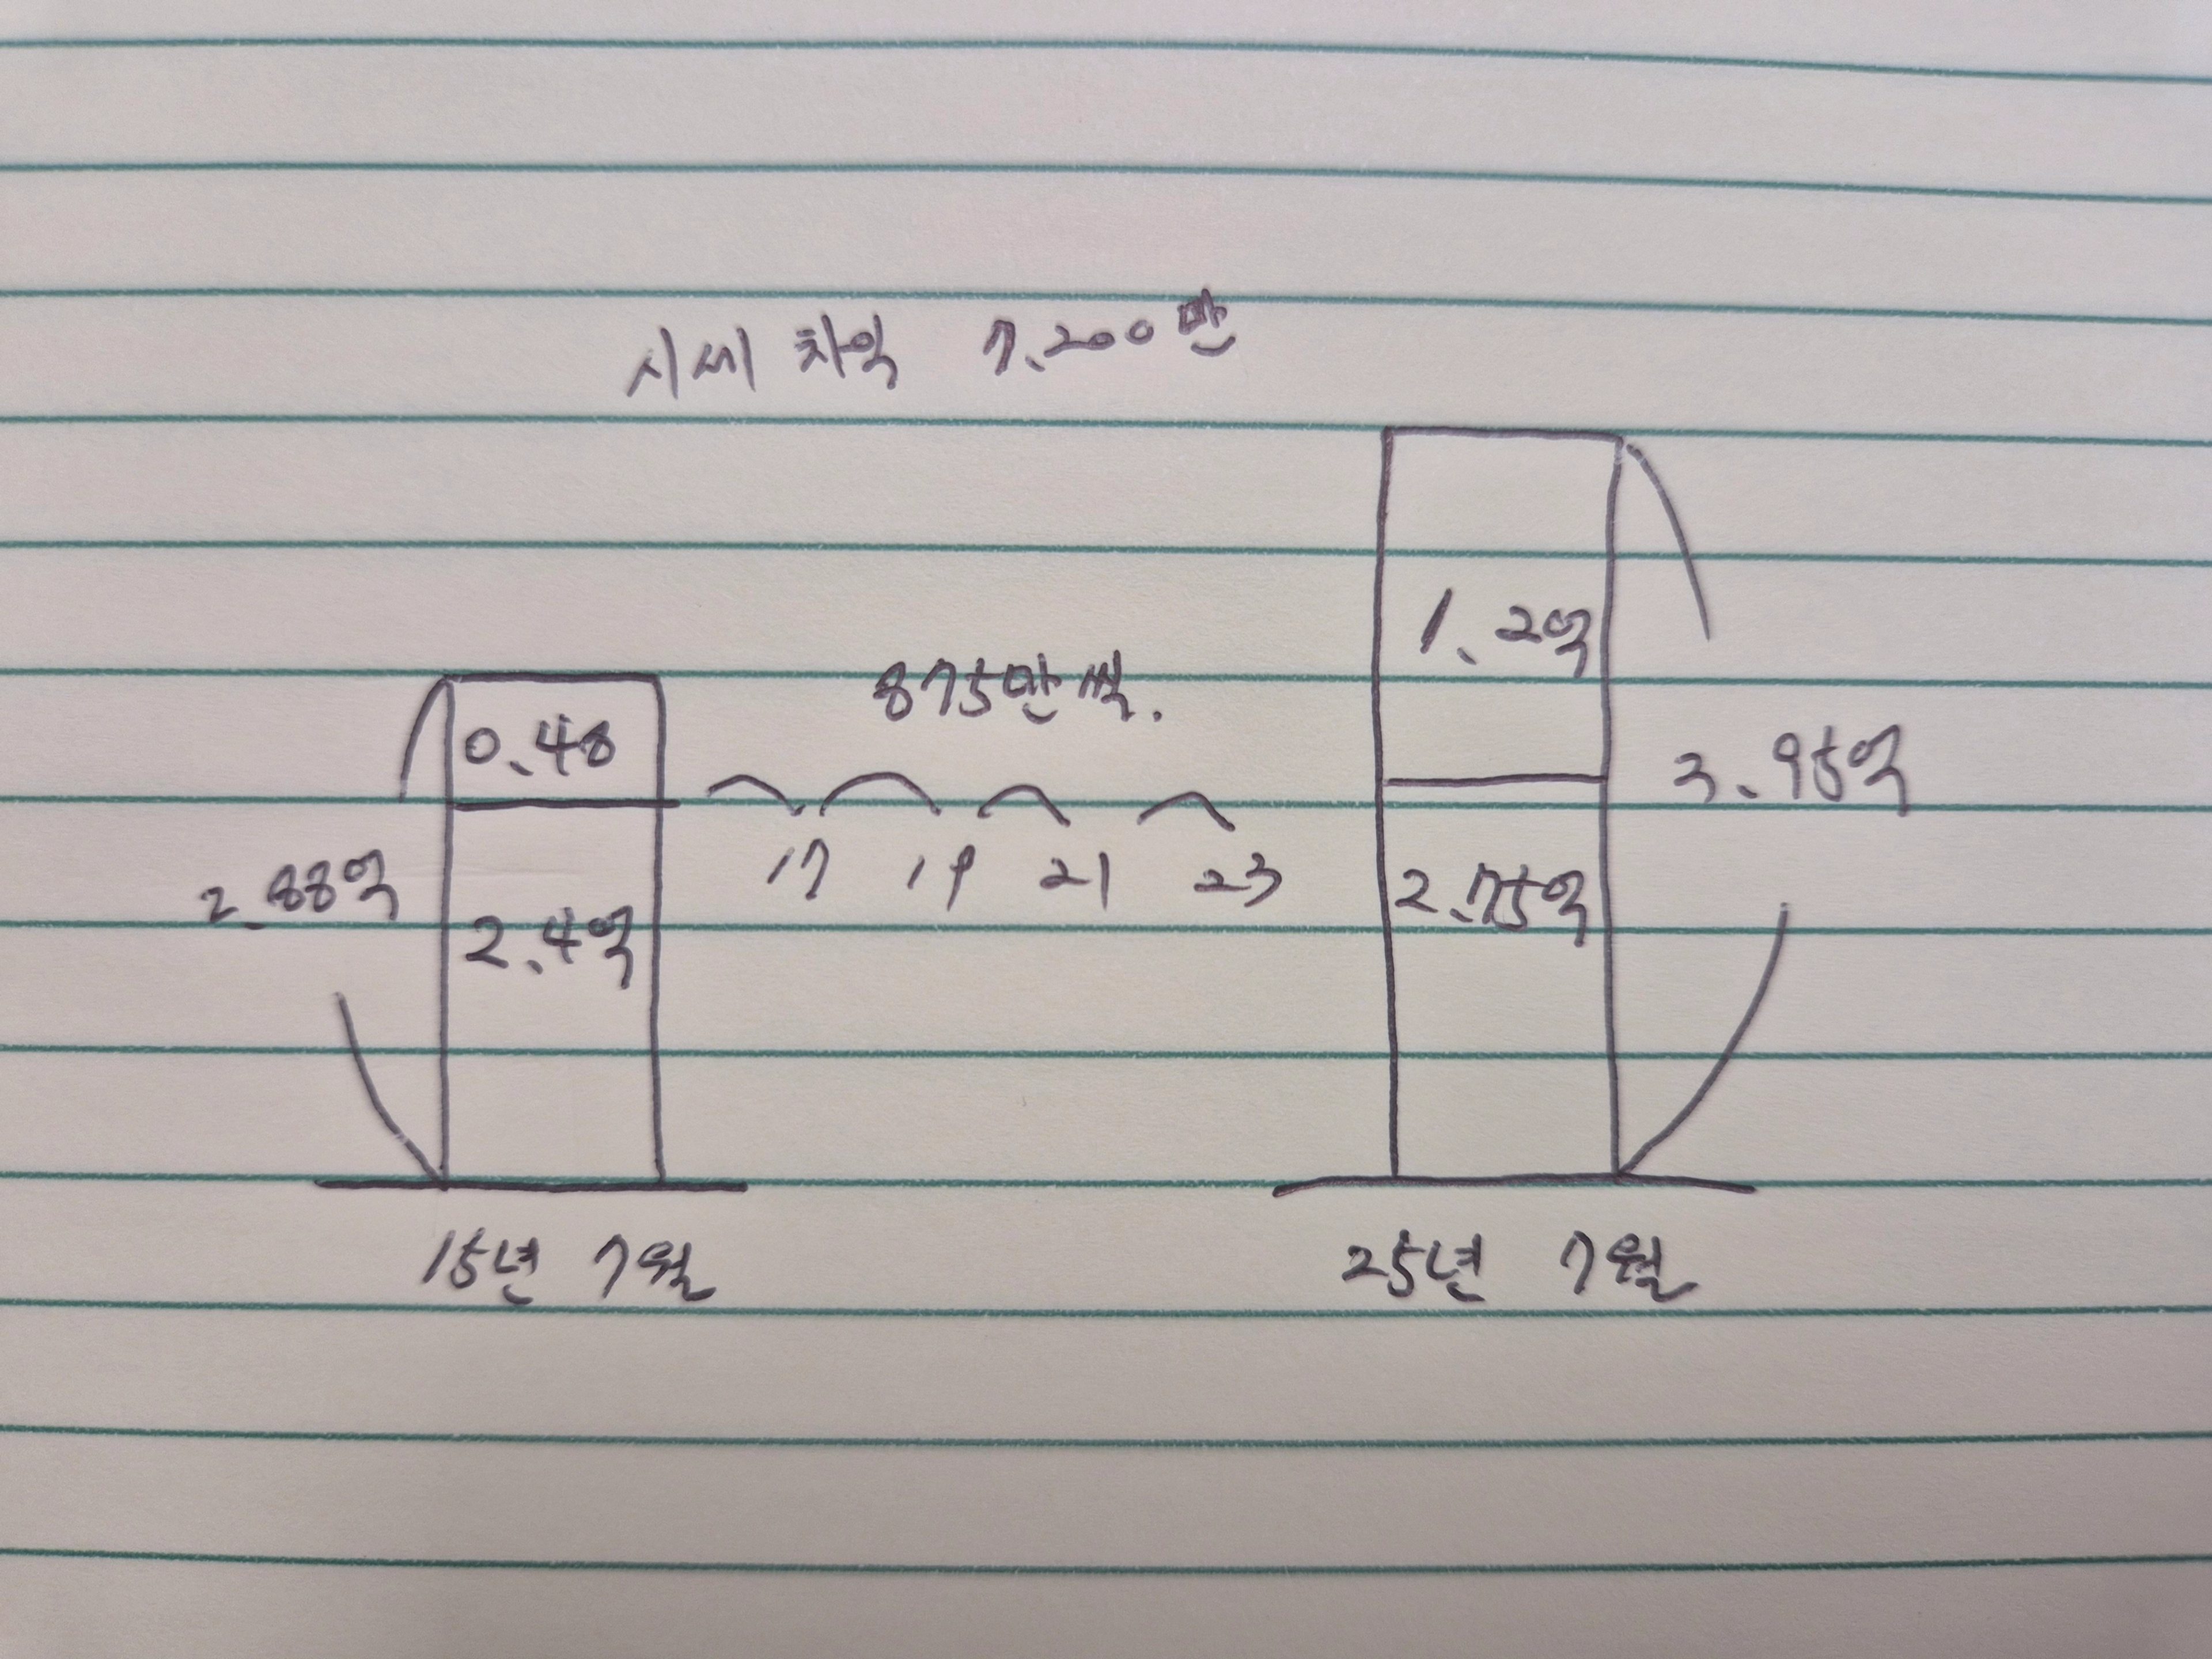 시세 차익 7.200만
1.2억
875만씩.
0.48
3.95억
17 19 21 23
2.88억
2.75억
2.4억
15년 7월
25년 7월